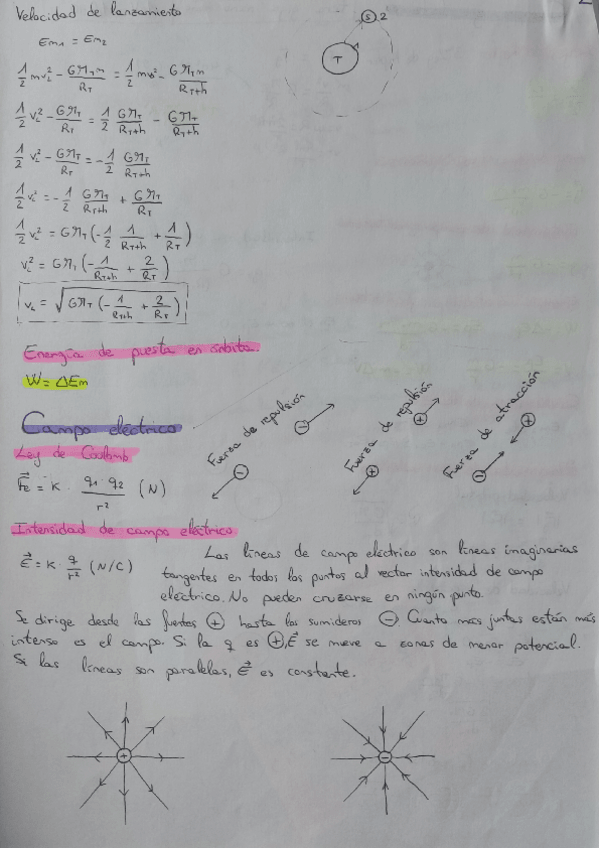 Velocidad de lanzamiento
S 2
T
Em₁ = Em₂
1/2 mv_L² - GM_T m/R_T = 1/2 mv² - GM_T m/R_T+h
1/2 v_L² - GM_T/R_T = 1/2 GM_T/R_T+h - GM_T/R_T+h
1/2 v_L² - GM_T/R_T = -1/2 GM_T/R_T+h
1/2 v_L² = -1/2 GM_T/R_T+h + GM_T/R_T
1/2 v_L² = GM_T (-1/2 1/R_T+h + 1/R_T)
v_L² = GM_T (-1/R_T+h + 2/R_T)
v_L = √GM_T (-1/R_T+h + 2/R_T)
Energía de puesta en órbita.
W = ΔEm
Campo eléctrico
Fuerza de repulsión
- -
Fuerza de repulsión
+ +
Fuerza de atracción
- +
Ley de Coulomb
F⃗e = K · q₁ · q₂/r² (N)
Intensidad de campo eléctrico
E⃗ = K · q/r² (N/C)
Las líneas de campo eléctrico son líneas imaginarias
tangentes en todos los puntos al vector intensidad de campo
eléctrico. No pueden cruzarse en ningún punto.
Se dirige desde las fuentes ⊕ hasta los sumideros ⊖ Cuanto mas juntas están más
intenso es el campo. Si la q es ⊕, E⃗ se mueve a zonas de menor potencial.
Si las líneas son paralelas, E⃗ es constante.
+ -